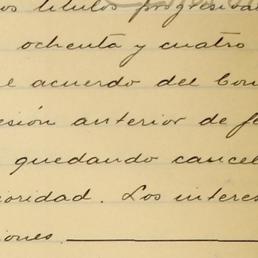 os títulos progresivas
ochenta y cuatro
e acuerdo del Con
esión anterior de fe
quedando cancel
oridad. Los interes
iones.